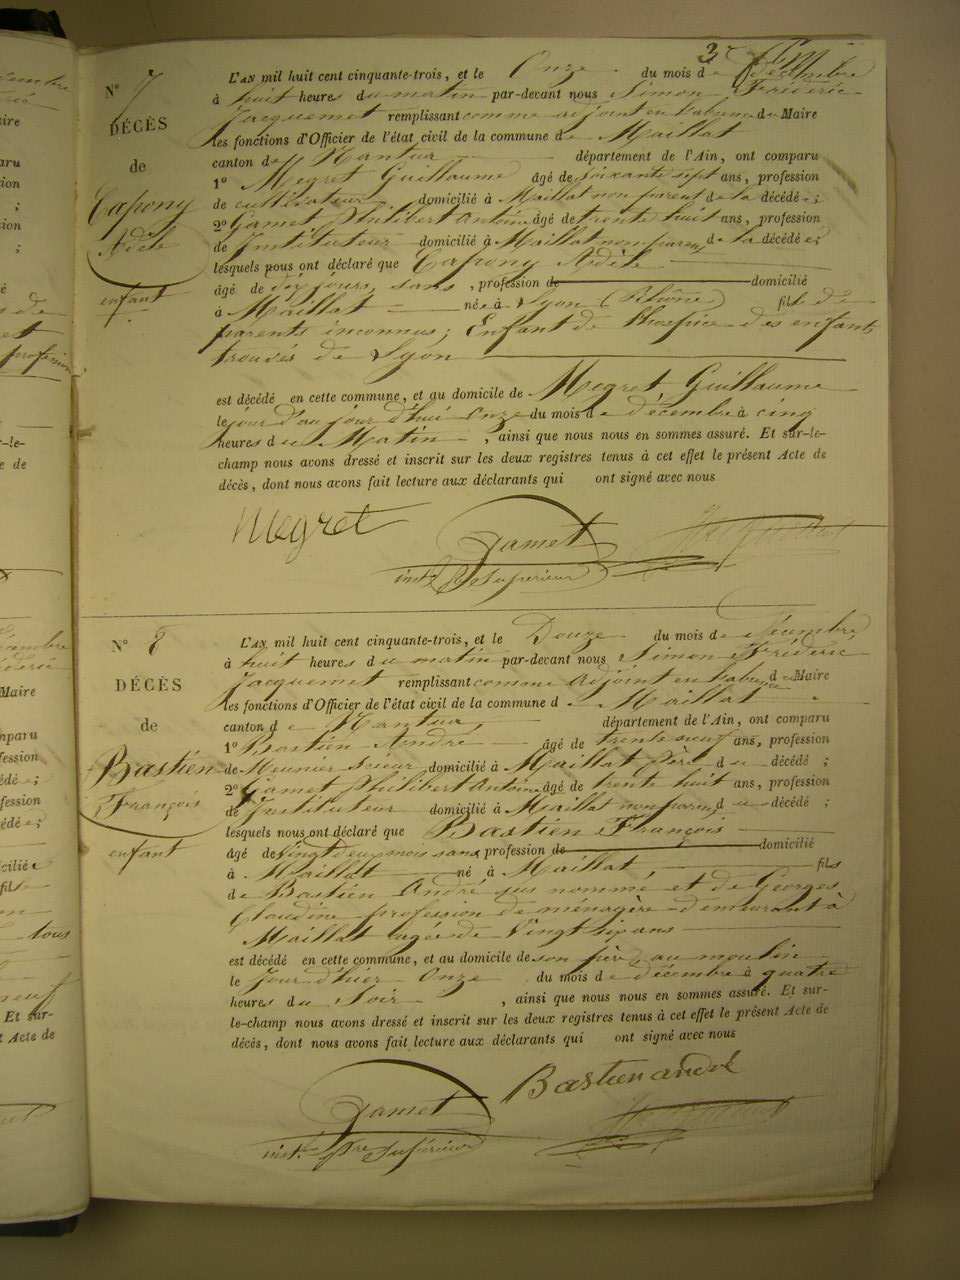 3
N° 7
DÉCÈS
de
Capony
Adèle
enfant
L'AN mil huit cent cinquante-trois, et le Onze du mois de Décembre
à huit heures du matin par-devant nous Simon Frédéric
Jacquemet remplissant comme adjoint en l'absence du Maire
les fonctions d'Officier de l'état civil de la commune de Maillat
canton de Nantua département de l'Ain, ont comparu
1° Megret Guillaume âgé de soixante sept ans, profession
de cultivateur domicilié à Maillat non parent de la décédée;
2° Gamet Philibert Antoine âgé de trente huit ans, profession
de Instituteur domicilié à Maillat non parent de la décédée;
lesquels nous ont déclaré que Capony Adèle
âgé de dix jours, sans, profession de domicilié
à Maillat née à Lyon (Rhône) fille de
parents inconnus; Enfant de l'hospice des enfants
trouvés de Lyon
est décédé en cette commune, et au domicile de Megret Guillaume
le jour d'aujourd'hui Onze du mois de décembre à cinq
heures du Matin, ainsi que nous nous en sommes assuré. Et sur-le-
champ nous avons dressé et inscrit sur les deux registres tenus à cet effet le présent Acte de
décès, dont nous avons fait lecture aux déclarants qui ont signé avec nous
Megret
Gamet
inst. pre supérieur
N° 8
DÉCÈS
de
Bastien
François
enfant
L'AN mil huit cent cinquante-trois, et le Douze du mois de Décembre
à huit heures du matin par-devant nous Simon Frédéric
Jacquemet remplissant comme adjoint en l'absence du Maire
les fonctions d'Officier de l'état civil de la commune de Maillat
canton de Nantua, département de l'Ain, ont comparu
1° Bastien André âgé de trente neuf ans, profession
de Meunier Scieur domicilié à Maillat Père du décédé;
2° Gamet Philibert Antoine âgé de trente huit ans, profession
de Instituteur domicilié à Maillat non parent du décédé;
lesquels nous ont déclaré que Bastien François
âgé de vingt deux mois sans profession de domicilié
à Maillat né à Maillat fils
de Bastien André sus nommé et de Georges
Claudine profession de ménagère demeurant à
Maillat agée de vingt six ans
est décédé en cette commune, et au domicile de son père, au moulin
le Jour d'hier Onze du mois de décembre à quatre
heures du Soir, ainsi que nous nous en sommes assuré. Et sur-
le-champ nous avons dressé et inscrit sur les deux registres tenus à cet effet le présent Acte de
décès, dont nous avons fait lecture aux déclarants qui ont signé avec nous
Bastien andré
Gamet
inst. pre supérieur